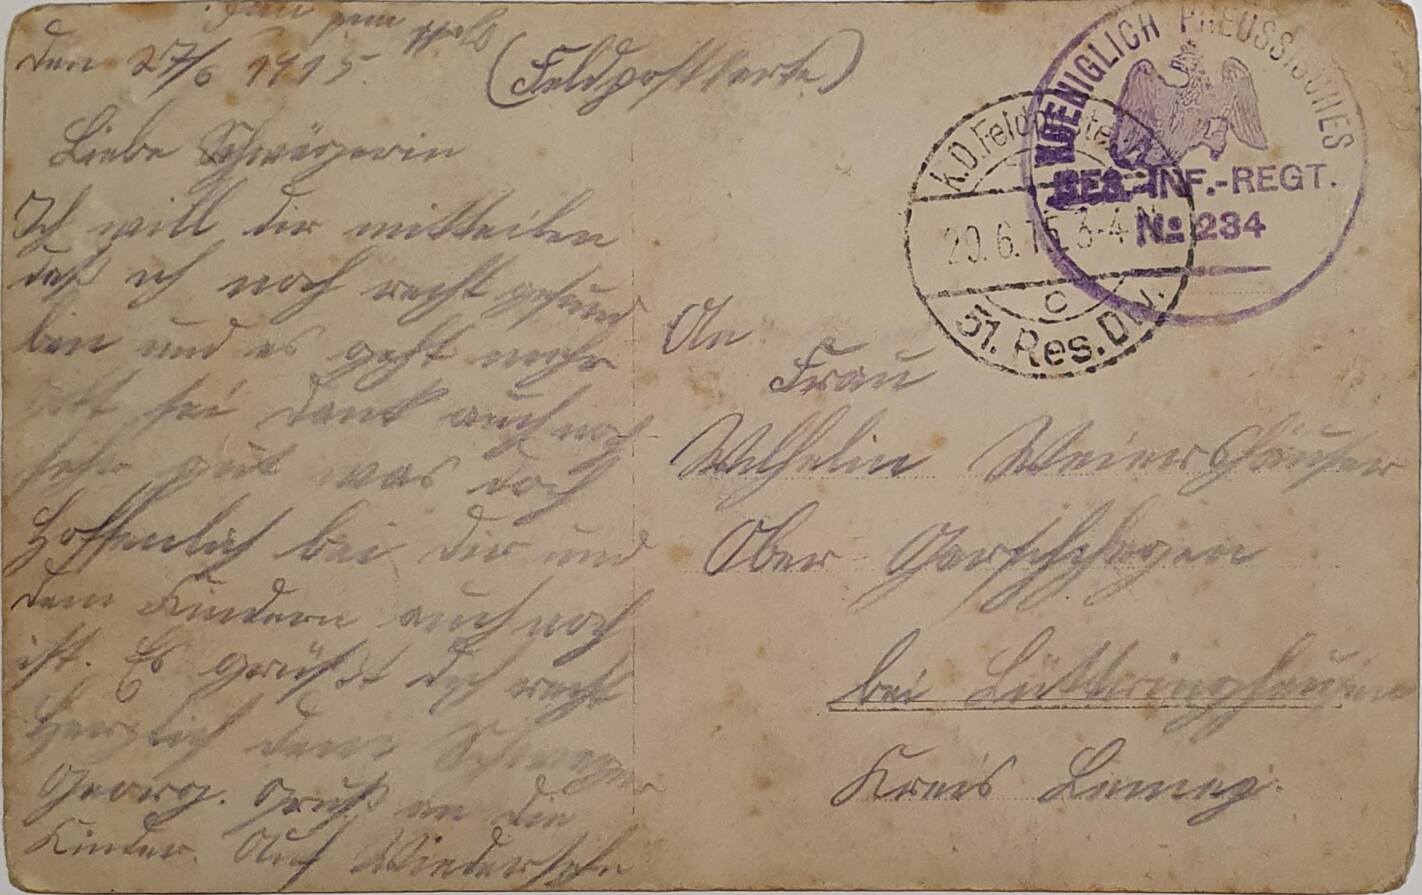 den 27/6 1915
(Feldpostkarte)
Liebe Schwägerin
Ich will dir mitteilen
daß ich noch recht gesund
bin und es geht mihr
Gott sei dank auch noch
sehr gut was doch
Hoffenlich bei dir und
dem Kindern auch noch
ist. Es grüßt dich recht
Herzlich dein Schwager
Georg. Gruß an die
Kinder. Auf Wiedersehn
KOENIGLICH PREUSSISCHES
RES. INF.-REGT.
No 234
K.D. Feldpoststation
20.6.15 3-4 N
c
51. Res. Div.
An
Frau
Wilhelm Weiershäuser
Ober
bei Lüttringhausen
Kreis Lennep.